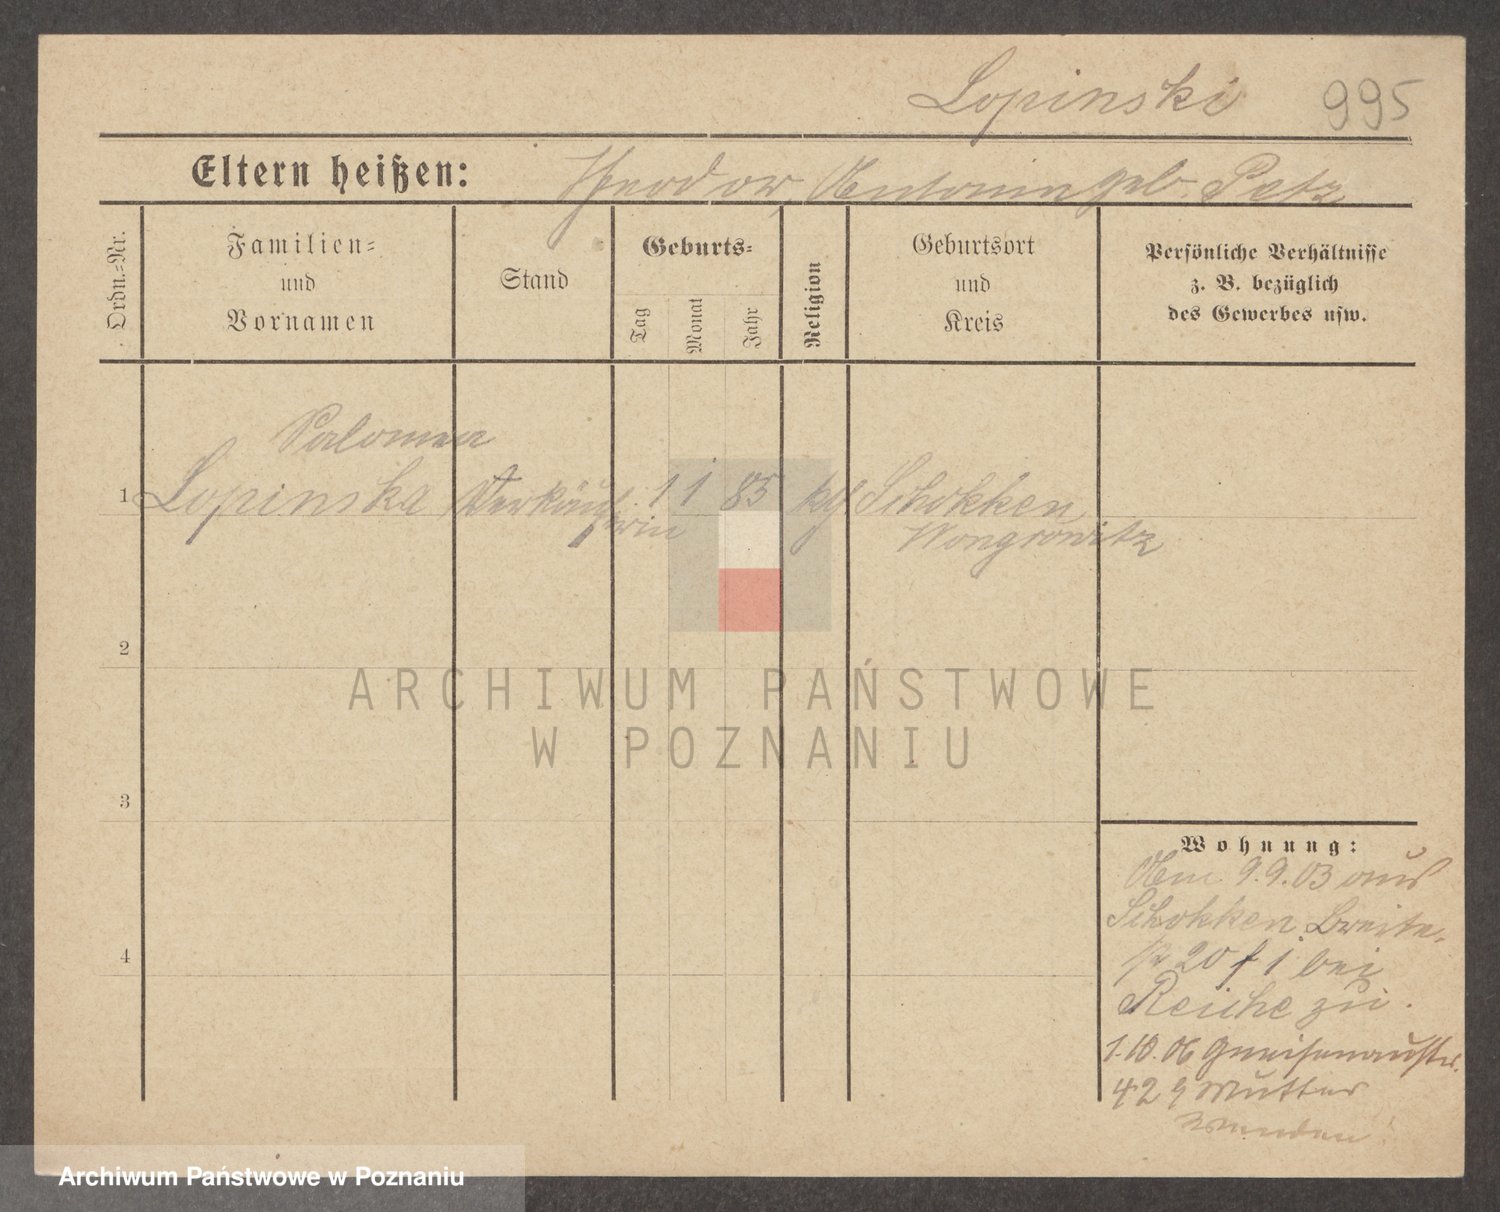 Lopinski 995
Eltern heißen: Theodor, Antonin geb. Petz
Ordn.-Nr.
Familien-
und
Vornamen
Stand
Geburts-
Tag
Monat
Jahr
Religion
Geburtsort
und
Kreis
Persönliche Verhältnisse
z. B. bezüglich
des Gewerbes usw.
Salomea
1 Lopinska Verkäuferin 1 1 85 kth Schokken
Wongrowitz
2
3
4
Wohnung:
Am 9.9.03 aus
Schokken Breite-
str 20 bei
Reiche zu.
1.10.06 Gneisenaustr.
42 Mutter
wenden!
ARCHIWUM PAŃSTWOWE
W POZNANIU
Archiwum Państwowe w Poznaniu